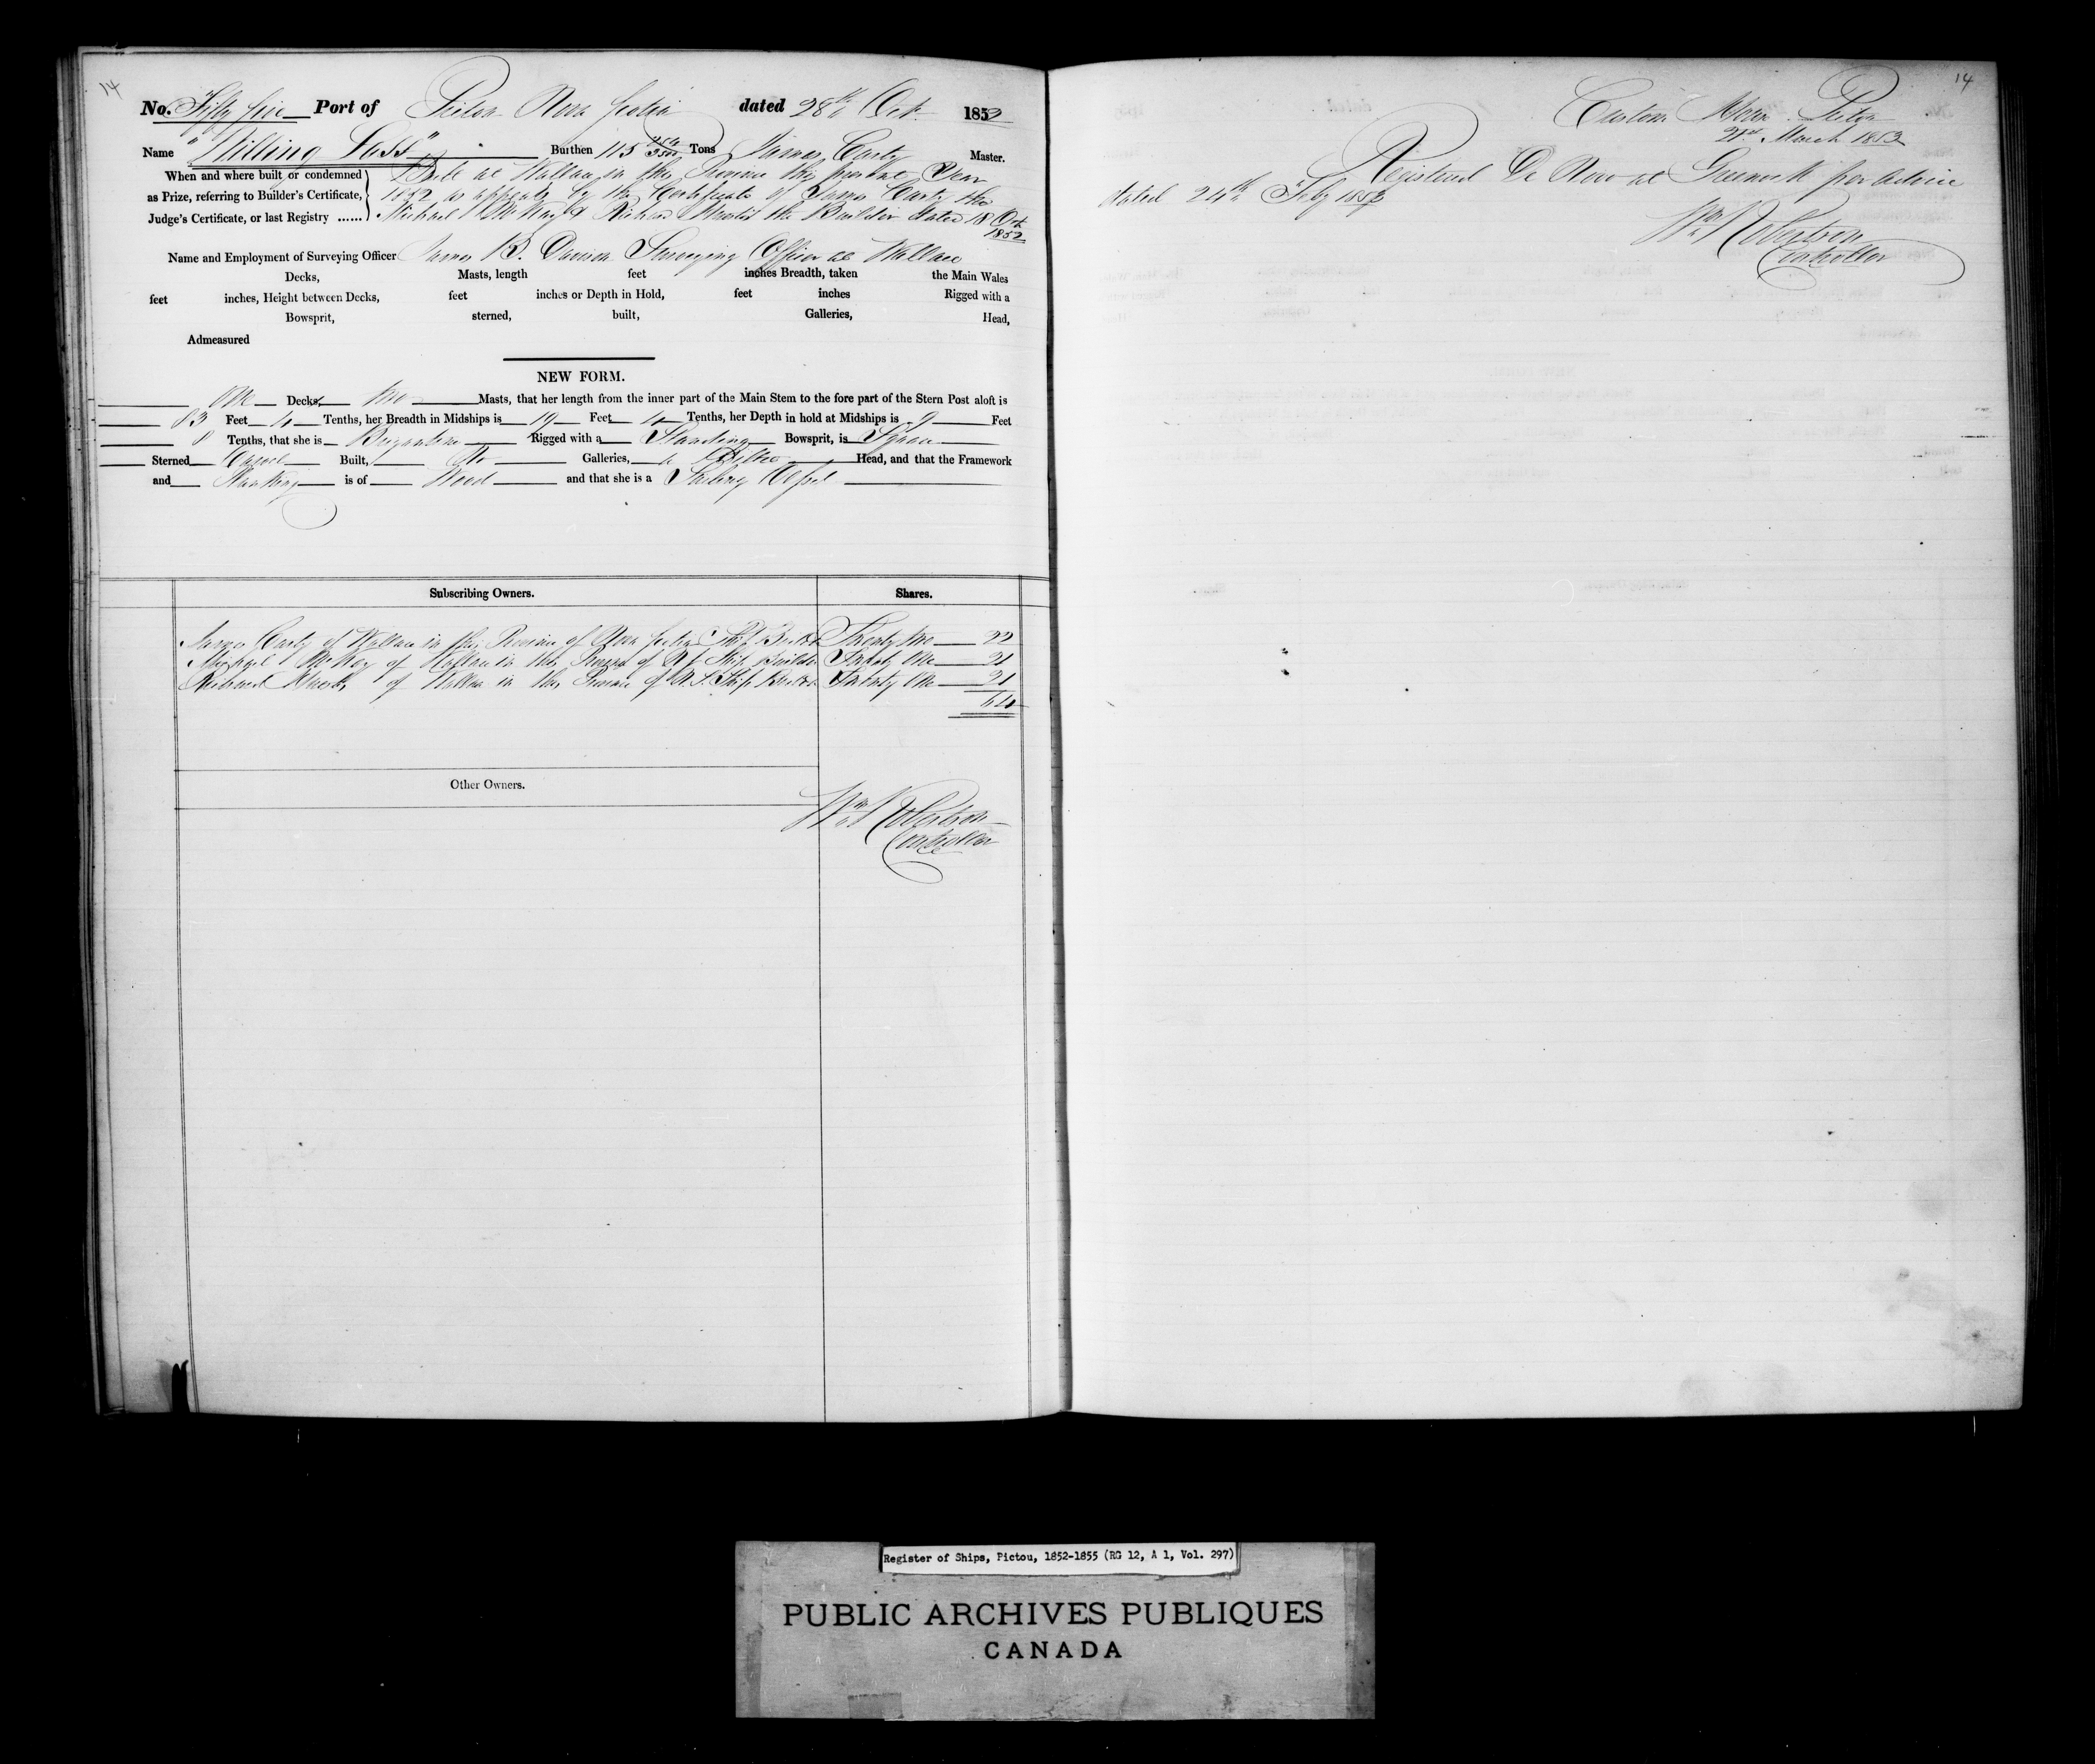 14
No. Fifty five Port of Pictou Nova Scotia dated 28th Oct. 1852
Name "Willing Lass" Burthen 115 Tons James Carty Master.
When and where built or condemned
as Prize, referring to Builder's Certificate,
Judge's Certificate, or last Registry ......
Built at Wallace in this Province this present Year
1852 as appears by the Certificate of James Carty
Michael McKay & Richard the Builders dated 18 Oct
1852
Name and Employment of Surveying Officer James B. Davison Surveying Officer at Wallace
Decks, Masts, length feet inches Breadth, taken the Main Wales
feet inches, Height between Decks, feet inches or Depth in Hold, feet inches Rigged with a
Bowsprit, sterned, built, Galleries, Head,
Admeasured
NEW FORM.
One Decks, two Masts, that her length from the inner part of the Main Stem to the fore part of the Stern Post aloft is
83 Feet 4 Tenths, her Breadth in Midships is 19 Feet 4 Tenths, her Depth in hold at Midships is 9 Feet
8 Tenths, that she is Brigantine Rigged with a Standing Bowsprit, is Square
Sterned Carvel Built, No Galleries, a Billet Head, and that the Framework
and Planking is of Wood and that she is a Sailing Vessel
Subscribing Owners. Shares.
James Carty of Wallace in this Province of Nova Scotia Ship Builder Twenty two 22
Michael McKay of Wallace in this Province of N S Ship Builder Twenty One 21
Richard of Wallace in this Province of N.S. Ship Builder Twenty One 21
64
Other Owners.
Wm Robertson
Controller
14
Custom House Pictou
21st March 1853
Registered De Novo at Greenock per advice
dated 24th Feby 1853
Wm Robertson
Controller
Register of Ships, Pictou, 1852-1855 (RG 12, A 1, Vol. 297)
PUBLIC ARCHIVES PUBLIQUES
CANADA